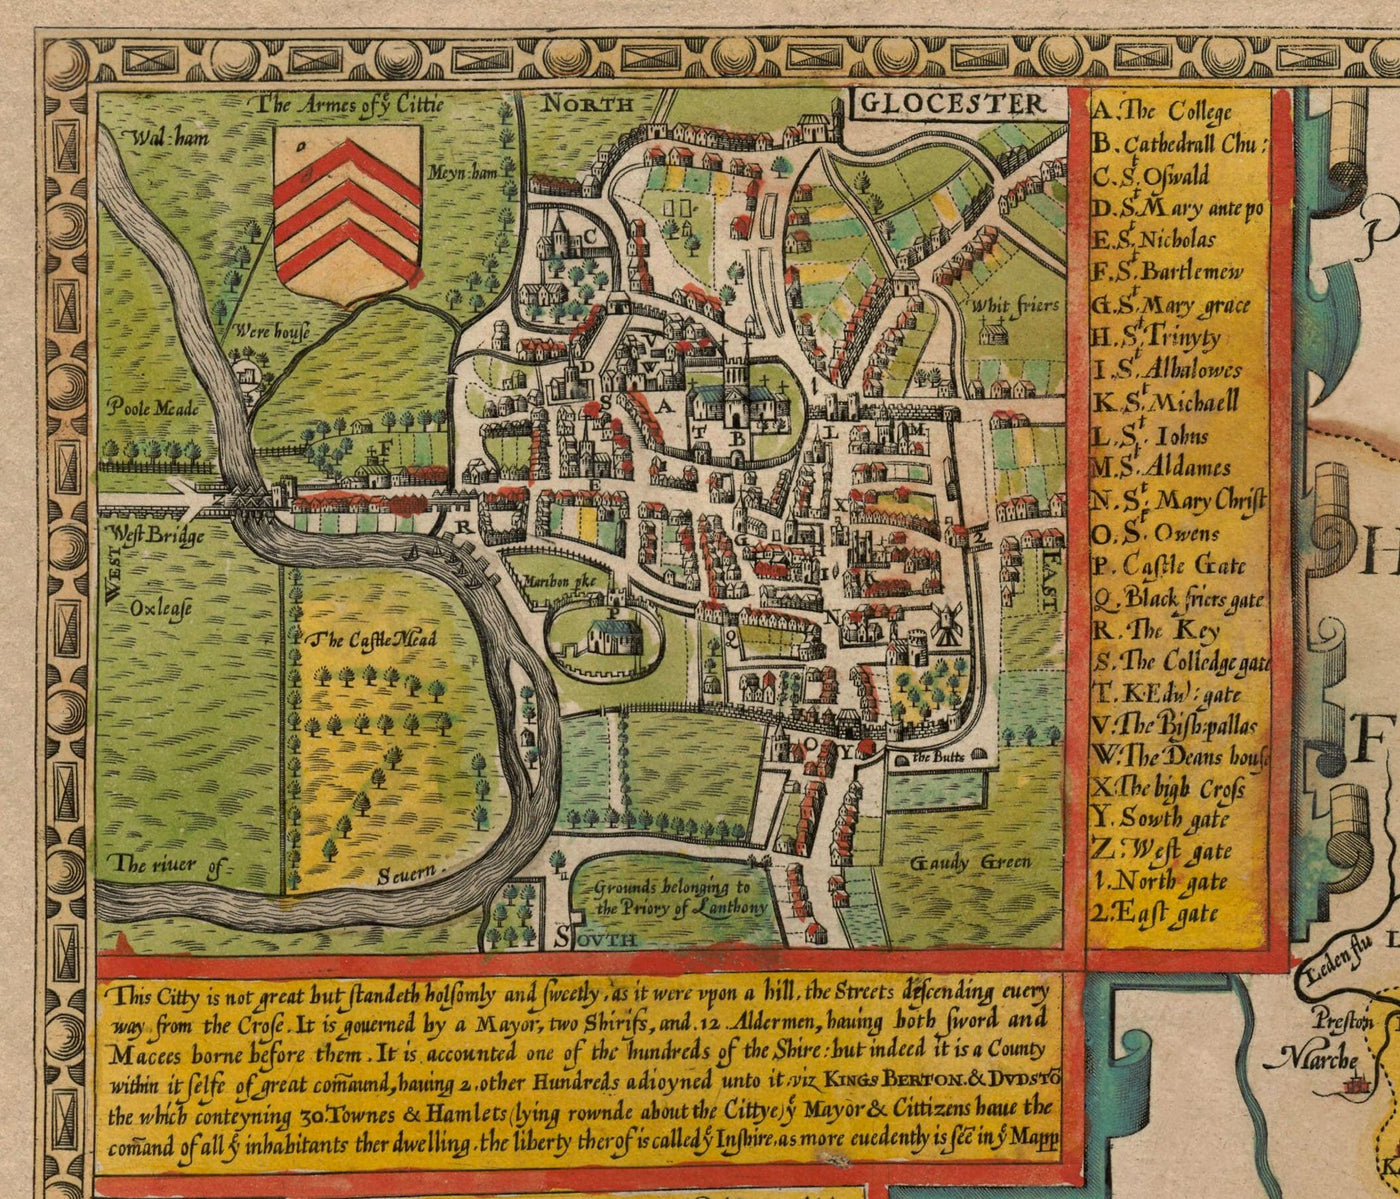 The Armes of yᵉ Cittie
NORTH
GLOCESTER
Wal:ham
Meyn:ham
C
Were house
Whit friers
V
D
W
Poole Meade
S
A
1
T
B
L
M
F
E
R
X
West Bridge
G
H
2
WEST
EAST
Oxlease
Maribon pke
I
P
N
The Castle Mead
Q
O
Y
the Butts
The riuer of
Seuern.
Gaudy Green
Grounds belonging to
the Priory of Lanthony
SOVTH
A. The College
B. Cathedrall Chu:
C. Sᵗ. Oſwald
D. Sᵗ. Mary ante po
E. Sᵗ. Nicholas
F. Sᵗ. Bartlemew
G. Sᵗ. Mary grace
H. Sᵗ. Trinyty
I. Sᵗ. Alhalowes
K. Sᵗ. Michaell
L. Sᵗ. Iohns
M. Sᵗ. Aldames
N. Sᵗ. Mary Chriſt
O. Sᵗ. Owens
P. Caſtle Gate
Q. Black friers gate
R. The Key
S. The Colledge gate
T. K. Edw: gate
V. The Biſh: pallas
W. The Deans houſe
X. The high Croſs
Y. Sowth gate
Z. Weſt gate
1. North gate
2. Eaſt gate
This Citty is not great but ſtandeth holſomly and ſweetly, as it were vpon a hill, the Streets deſcending euery
way from the Croſe. It is gouerned by a Mayor, two Shirifs, and .12 Aldermen, hauing both ſword and
Macees borne before them. It is accounted one of the hundreds of the Shire: but indeed it is a County
within it ſelfe of great com̄aund, hauing 2. other Hundreds adioyned unto it. viz KINGS BERTON. & DVDSTŌ
the which conteyning 30. Townes & Hamlets (lying rownde about the Cittye) yᵉ Mayor & Cittizens haue the
com̄and of all yᵉ inhabitants ther dwelling. the liberty therof is called yᵉ Inſhire, as more euedently is ſēe in yᵉ Mapp
Leden flu
Preston
Marche
H
F